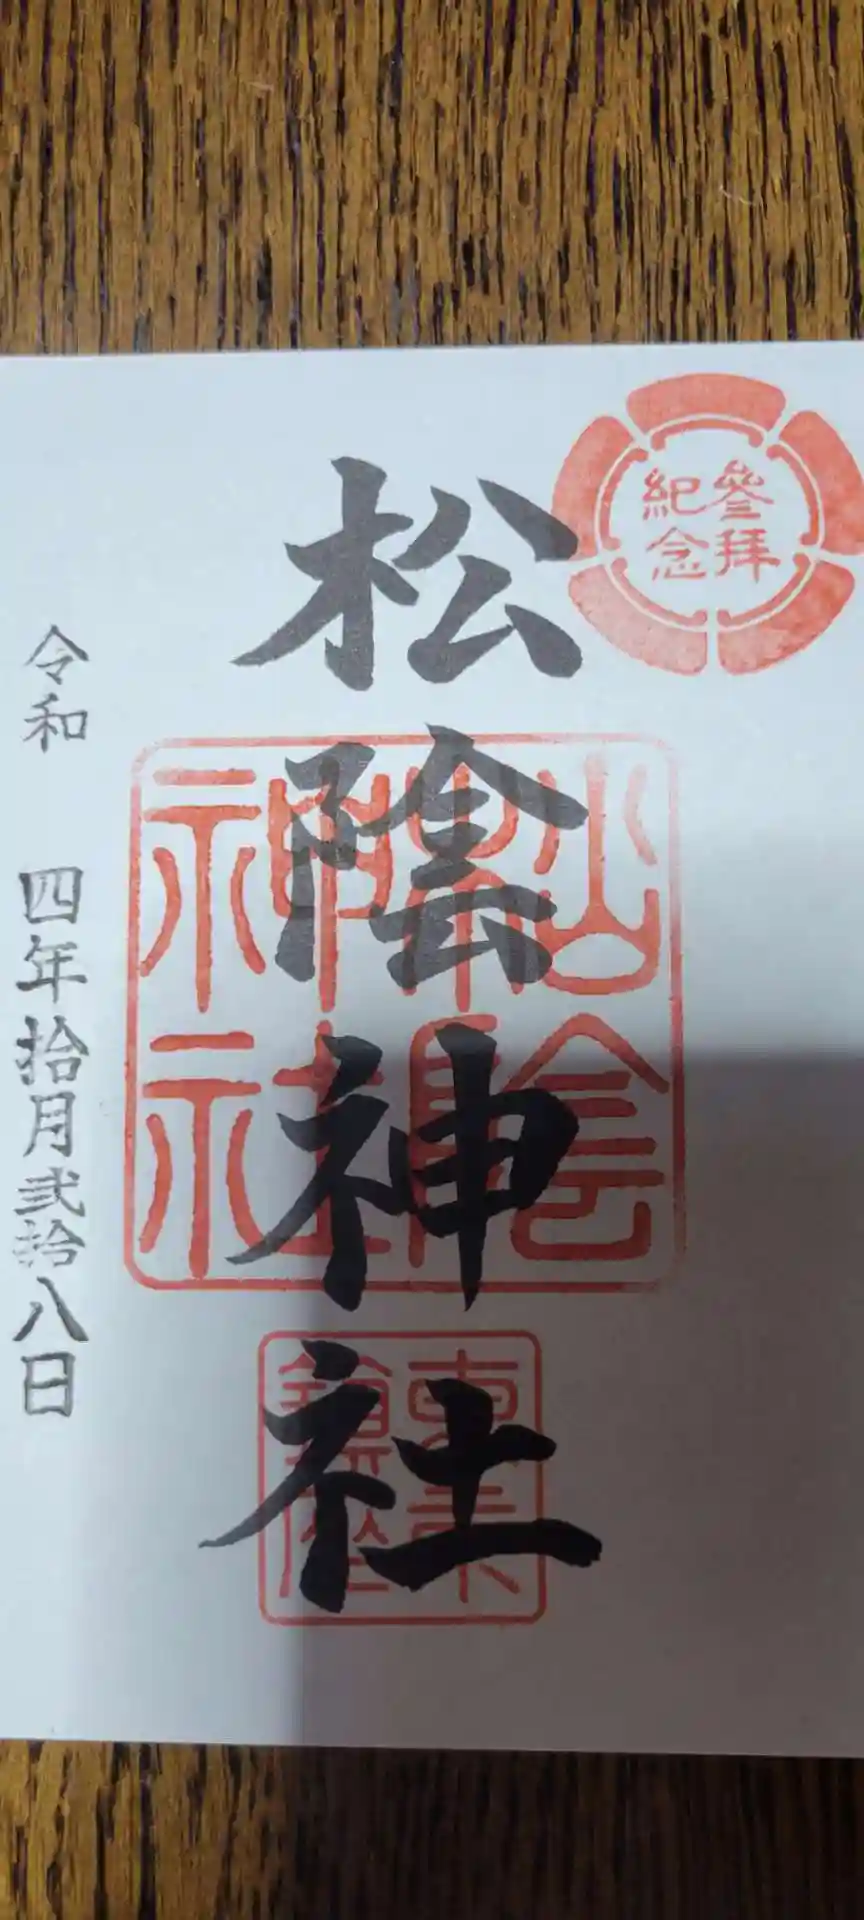 參拜
紀念
松陰神社
松陰
神社
東京
鎮座
令和 四年拾月弐拾八日